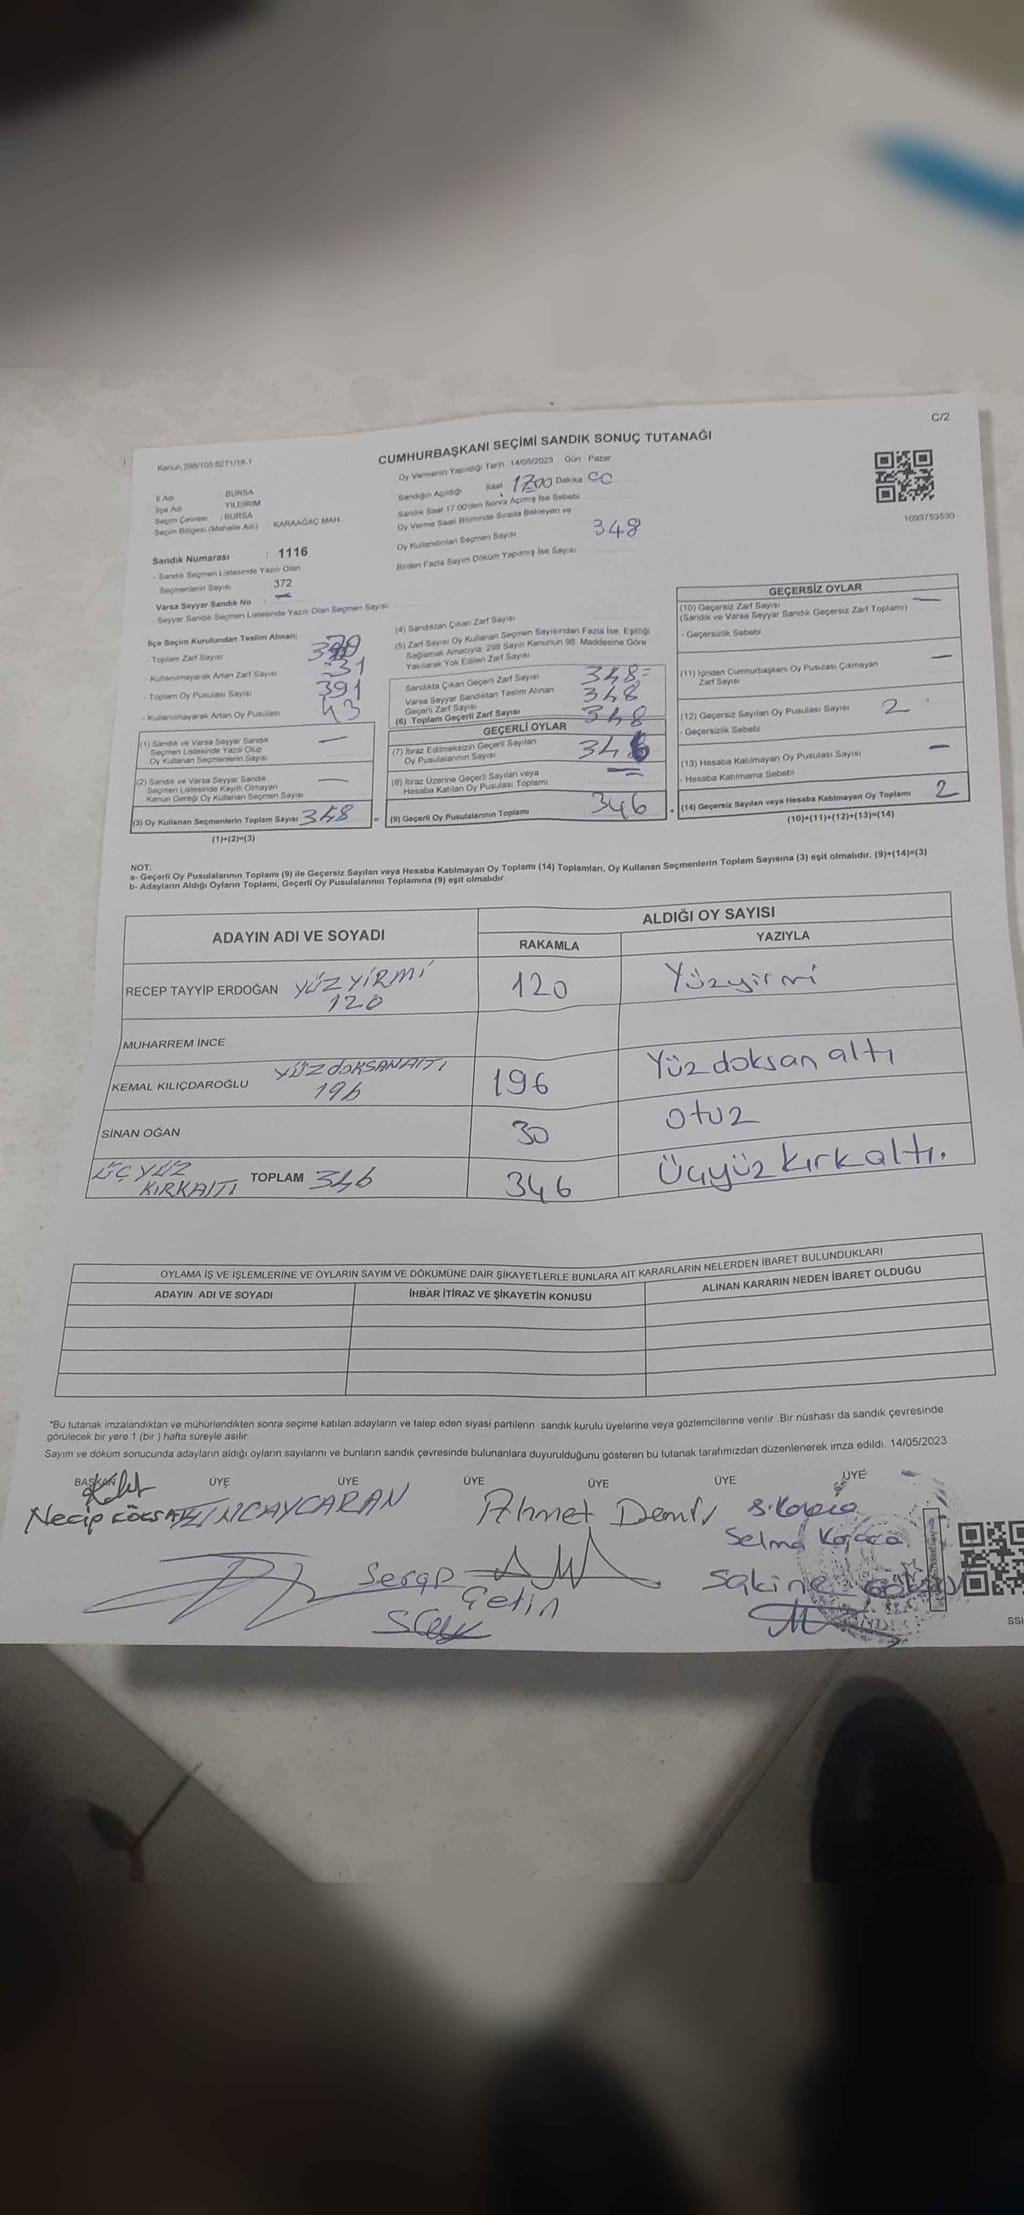 C/2
Kanun 298/105.6271/18-1
CUMHURBAŞKANI SEÇİMİ SANDIK SONUÇ TUTANAĞI
Oy Vermenin Yapıldığı Tarih 14/05/2023 Gün : Pazar
İl Adı BURSA
İlçe Adı YILDIRIM
Seçim Çevresi : BURSA
Seçim Bölgesi (Mahalle Adı) KARAAĞAÇ MAH.
Sandığın Açıldığı Saat 17:00 Dakika
Sandık Saat 17:00'den Sonra Açılmış İse Sebebi
Oy Verme Saati Bitiminde Sırada Bekleyen ve
Oy Kullandırılan Seçmen Sayısı 348
Birden Fazla Sayım Döküm Yapılmış İse Sayısı
1093753530
Sandık Numarası : 1116
- Sandık Seçmen Listesinde Yazılı Olan
Seçmenlerin Sayısı : 372
Varsa Seyyar Sandık No —
- Seyyar Sandık Seçmen Listesinde Yazılı Olan Seçmen Sayısı
İlçe Seçim Kurulundan Teslim Alınan;
- Toplam Zarf Sayısı
- Kullanılmayarak Artan Zarf Sayısı : 31
- Toplam Oy Pusulası Sayısı 391
- Kullanılmayarak Artan Oy Pusulası 43
(1) Sandık ve Varsa Seyyar Sandık
Seçmen Listesinde Yazılı Olup
Oy Kullanan Seçmenlerin Sayısı —
(2) Sandık ve Varsa Seyyar Sandık
Seçmen Listesinde Kayıtlı Olmayan
Kanun Gereği Oy Kullanan Seçmen Sayısı —
(3) Oy Kullanan Seçmenlerin Toplam Sayısı 348
(1)+(2)=(3)
(4) Sandıktan Çıkan Zarf Sayısı
(5) Zarf Sayısı Oy Kullanan Seçmen Sayısından Fazla İse, Eşitliği
Sağlamak Amacıyla, 298 Sayılı Kanunun 98. Maddesine Göre
Yakılarak Yok Edilen Zarf Sayısı
Sandıkta Çıkan Geçerli Zarf Sayısı 348
Varsa Seyyar Sandıktan Teslim Alınan
Geçerli Zarf Sayısı 348
(6) Toplam Geçerli Zarf Sayısı 348
GEÇERLİ OYLAR
(7) İtiraz Edilmeksizin Geçerli Sayılan
Oy Pusulalarının Sayısı 346
(8) İtiraz Üzerine Geçerli Sayılan veya
Hesaba Katılan Oy Pusulası Toplamı —
(9) Geçerli Oy Pusulalarının Toplamı 346
GEÇERSİZ OYLAR
(10) Geçersiz Zarf Sayısı —
(Sandık ve Varsa Seyyar Sandık Geçersiz Zarf Toplamı)
- Geçersizlik Sebebi
(11) İçinden Cumhurbaşkanı Oy Pusulası Çıkmayan
Zarf Sayısı —
(12) Geçersiz Sayılan Oy Pusulası Sayısı 2
- Geçersizlik Sebebi
(13) Hesaba Katılmayan Oy Pusulası Sayısı —
- Hesaba Katılmama Sebebi
(14) Geçersiz Sayılan veya Hesaba Katılmayan Oy Toplamı 2
(10)+(11)+(12)+(13)=(14)
NOT:
a- Geçerli Oy Pusulalarının Toplamı (9) ile Geçersiz Sayılan veya Hesaba Katılmayan Oy Toplamı (14) Toplamları, Oy Kullanan Seçmenlerin Toplam Sayısına (3) eşit olmalıdır. (9)+(14)=(3)
b- Adayların Aldığı Oyların Toplamı, Geçerli Oy Pusulalarının Toplamına (9) eşit olmalıdır.
ADAYIN ADI VE SOYADI
ALDIĞI OY SAYISI
RAKAMLA YAZIYLA
RECEP TAYYİP ERDOĞAN YÜZYİRMİ 120 120 Yüzyirmi
MUHARREM İNCE
KEMAL KILIÇDAROĞLU YÜZDOKSANALTI 196 196 Yüzdoksan altı
SİNAN OĞAN 30 otuz
ÜÇYÜZ KIRKALTI TOPLAM 346 346 Üçyüz kırkaltı.
OYLAMA İŞ VE İŞLEMLERİNE VE OYLARIN SAYIM VE DÖKÜMÜNE DAİR ŞİKAYETLERLE BUNLARA AİT KARARLARIN NELERDEN İBARET BULUNDUKLARI
ADAYIN ADI VE SOYADI İHBAR İTİRAZ VE ŞİKAYETİN KONUSU ALINAN KARARIN NEDEN İBARET OLDUĞU
*Bu tutanak imzalandıktan ve mühürlendikten sonra seçime katılan adayların ve talep eden siyasi partilerin sandık kurulu üyelerine veya gözlemcilerine verilir. Bir nüshası da sandık çevresinde
görülecek bir yere 1 (bir ) hafta süreyle asılır.
Sayım ve döküm sonucunda adayların aldığı oyların sayılarını ve bunların sandık çevresinde bulunanlara duyurulduğunu gösteren bu tutanak tarafımızdan düzenlenerek imza edildi. 14/05/2023
BAŞKAN ÜYE ÜYE ÜYE ÜYE ÜYE ÜYE
Necip
Ahmet Demir
Selma Koraca
Serap Çetin
Sakine